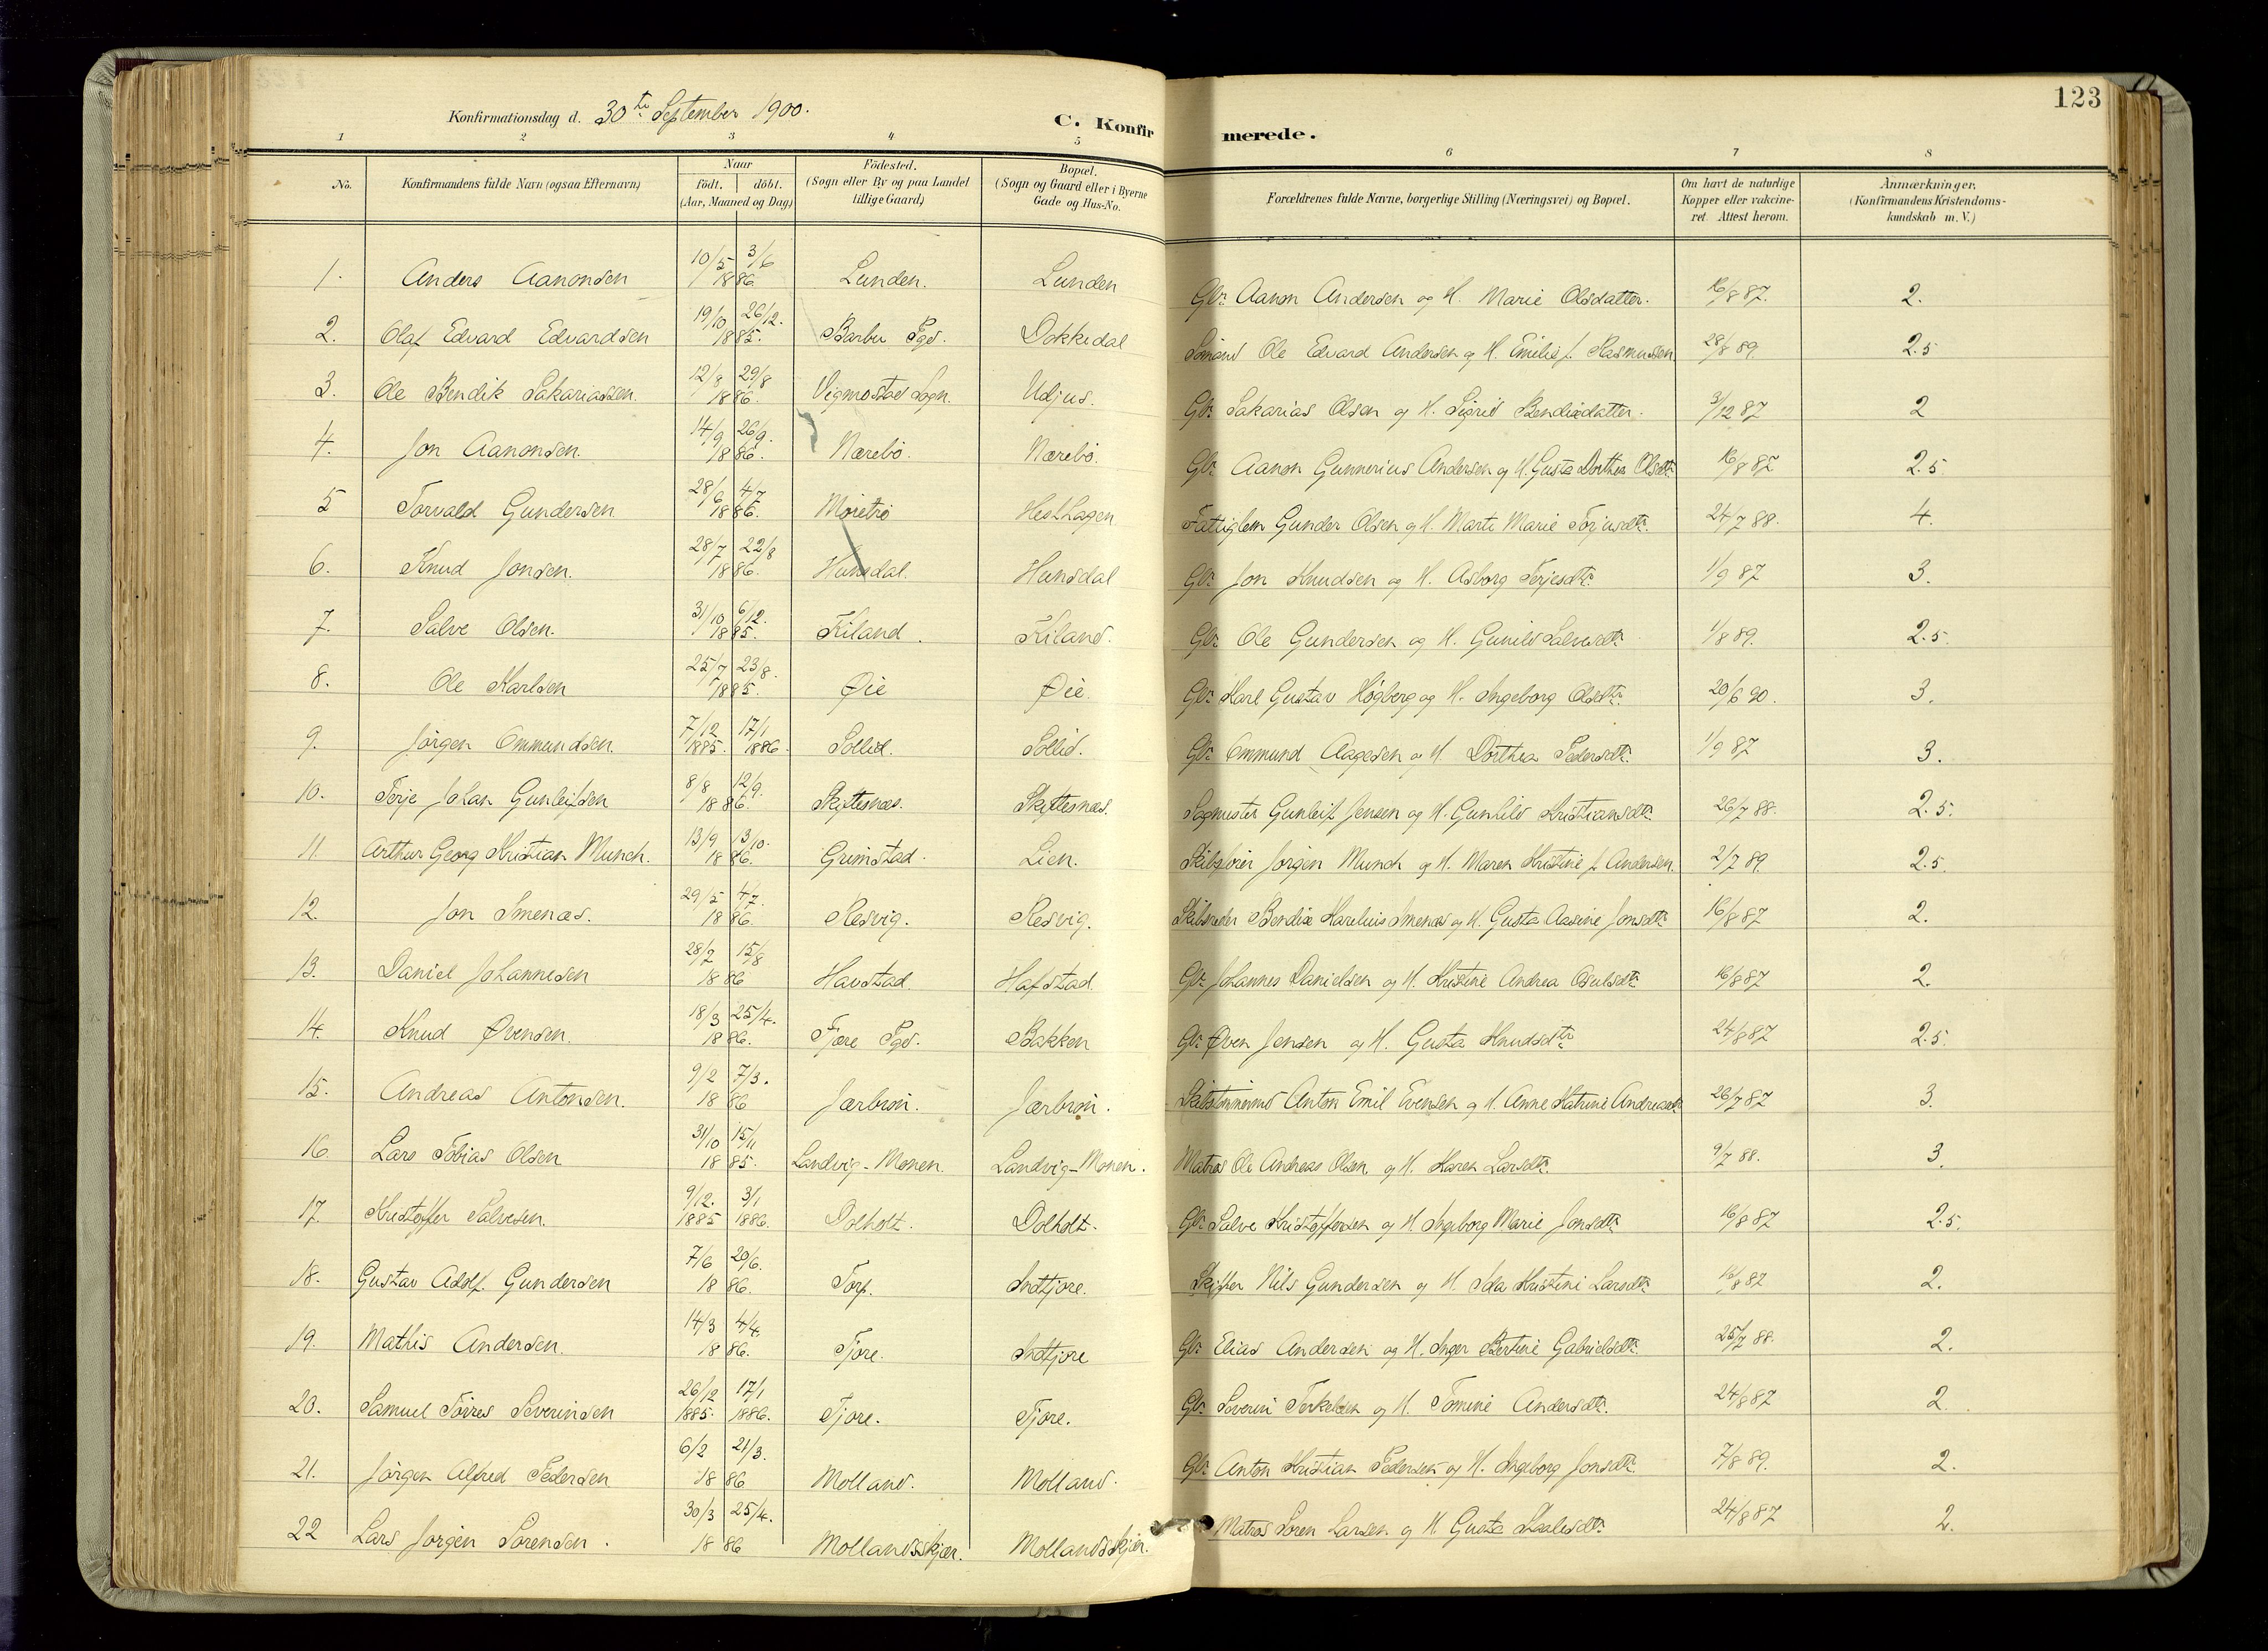 123
Konfirmationsdag d. 30te September 1900.
C. Konfirmerede.
1 2 3 4 5 6 7 8
No. | Konfirmandens fulde Navn (ogsaa Efternavn) | Naar födt. döbt. (Aar, Maaned og Dag) | Födested. (Sogn eller By og paa Landet tillige Gaard) | Bopæl. (Sogn og Gaard eller i Byerne Gade og Hus-No. | Forældrenes fulde Navne, borgerlige Stilling (Næringsvei) og Bopæl. | Om havt de naturlige Kopper eller vakcineret. Attest herom. | Anmærkninger. (Konfirmandens Kristendomskundskab m. V.)
1. Anders Aanonsen 10/5 3/6 1886. Lunden. Lunden Gbr. Aanon Andersen og H. Marie Olsdatter. 16/8 87. 2.
2. Olaf Edvard Edvardsen 19/10 26/12. 1885. Barbu Pgd. Dokkedal Sömand Ole Edvard Andersen og H. Emilie f. Rasmussen 28/8 89. 2.5
3. Ole Bendik Sakariassen. 12/8 29/8 1886. Vigmostad Sogn. Udjus. Gbr. Sakarias Olsen og H. Sigrid Bendixdatter. 3/12 87 2
4. Jon Aanonsen. 14/9 26/9. 1886. Nærebö. Nærebö. Gbr. Aanon Gunnerius Andersen og H. Gusta Dorthea Olsdtr. 16/8 87 2.5.
5 Torvald Gundersen 28/6 4/7 1886. Moretrö Hesthagen Fattiglem Gunder Olsen og H. Marte Marie Terjusdtr. 24/7 88. 4.
6. Knud Jonsen. 28/7 22/8 1886. Hunsdal. Hunsdal Gbr. Jon Knudsen og H. Asborg Terjesdtr. 1/9 87 3.
7. Salve Olsen. 31/10 6/12. 1885. Kiland. Kiland. Gbr. Ole Gundersen og H. Gunild Salvesdtr. 1/8 89. 2.5.
8. Ole Karlsen 25/7 23/8. 1885. Øie Øie. Gbr. Karl Gustav Högberg og H. Ingeborg Olsdtr. 20/6 90. 3.
9. Jörgen Ommundsen. 7/12 1885. 17/1 1886. Sollid. Sollid. Gbr. Ommund Aagesen og H. Dorthea Pedersdtr. 1/9 87 3.
10. Terje Johan Gunleifsen 8/8 12/9. 1886. Skiftesnæs. Skiftesnæs. Sagmester Gunleif Jensen og H. Gunhild Kristiansdtr. 26/7 88. 2.5.
11. Arthur Georg Kristian Munch. 13/9 13/10. 1886. Grimstad. Lien. Skibsförer Jörgen Munch og H. Maren Kristine f. Andersen. 2/7 89. 2.5.
12. Jon Smenæs. 29/5 4/7. 1886. Resvig. Resvig. Skibsreder Bendix Karelius Smenæs og H. Gusta Aasine Jonsdtr. 16/8 87 2.
13. Daniel Johannesen 28/2 15/8 1886 Havstad. Hafstad. Gbr. Johannes Danielsen og H. Kristine Andrea Osulsdtr. 16/8 87 2.
14. Knud Øvensen. 18/3 25/4. 1886. Fjære Pgd. Bakken Gbr. Øven Jensen og H. Gusta Knudsdtr. 24/8 87 2.5.
15. Andreas Antonsen. 9/2 7/3. 1886 Jærbrön. Jærbrön. Skibstömmermd Anton Emil Evensen og H. Anne Katrine Andreasdtr. 26/7 87 3.
16. Lars Tobias Olsen 31/10 15/11 1885. Landvig-Monen. Landvig-Monen. Matros Ole Andreas Olsen og H. Karen Larsdtr. 9/7 88. 3.
17. Kristoffer Salvesen. 9/12. 1885 3/1 1886. Dolholt. Dolholt. Gbr. Salve Kristoffersen og H. Ingeborg Marie Jonsdtr. 16/8 87 2.5.
18. Gustav Adolf Gundersen 7/6 20/6. 1886. Torp. Indtjore. Skipper Nils Gundersen og H. Ida Kristine Larsdtr. 16/8 87 2.
19. Mathis Andersen. 14/3 4/4. 1886. Tjore. Indtjore Gbr. Elias Andersen og H. Inger Bertine Gabrielsdtr. 25/7 88. 2.
20. Samuel Törres Severinsen 26/12 1885. 17/1 1886. Tjore. Tjore. Gbr. Severin Terkelsen og H. Tomine Andersdtr. 24/8 87 2.
21. Jörgen Alfred Pedersen 6/2 21/3. 1886 Molland. Molland. Gbr. Anton Kristian Pedersen og H. Ingeborg Jonsdtr. 7/8 89. 2.
22 Lars Jorgen Sorensen. 30/3 25/4. 1886 Mollandsskjær. Mollandsskjær. Matros Soren Larsen og H. Gusta 24/8 87 2.